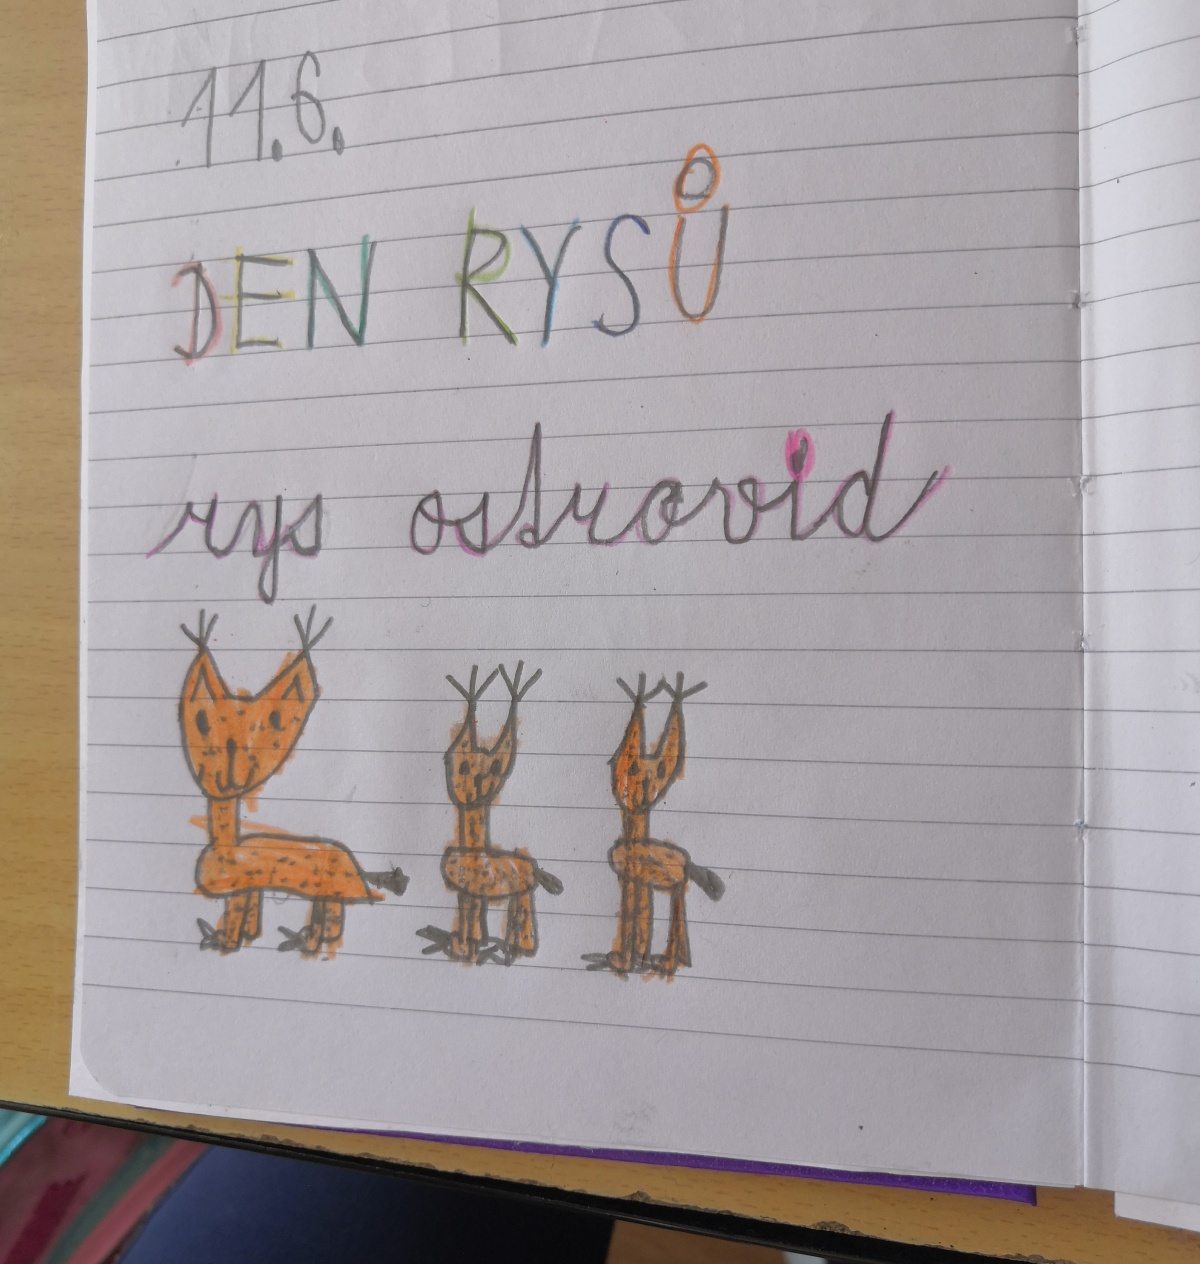 11.6.
DEN RYSŮ
rys ostrovid